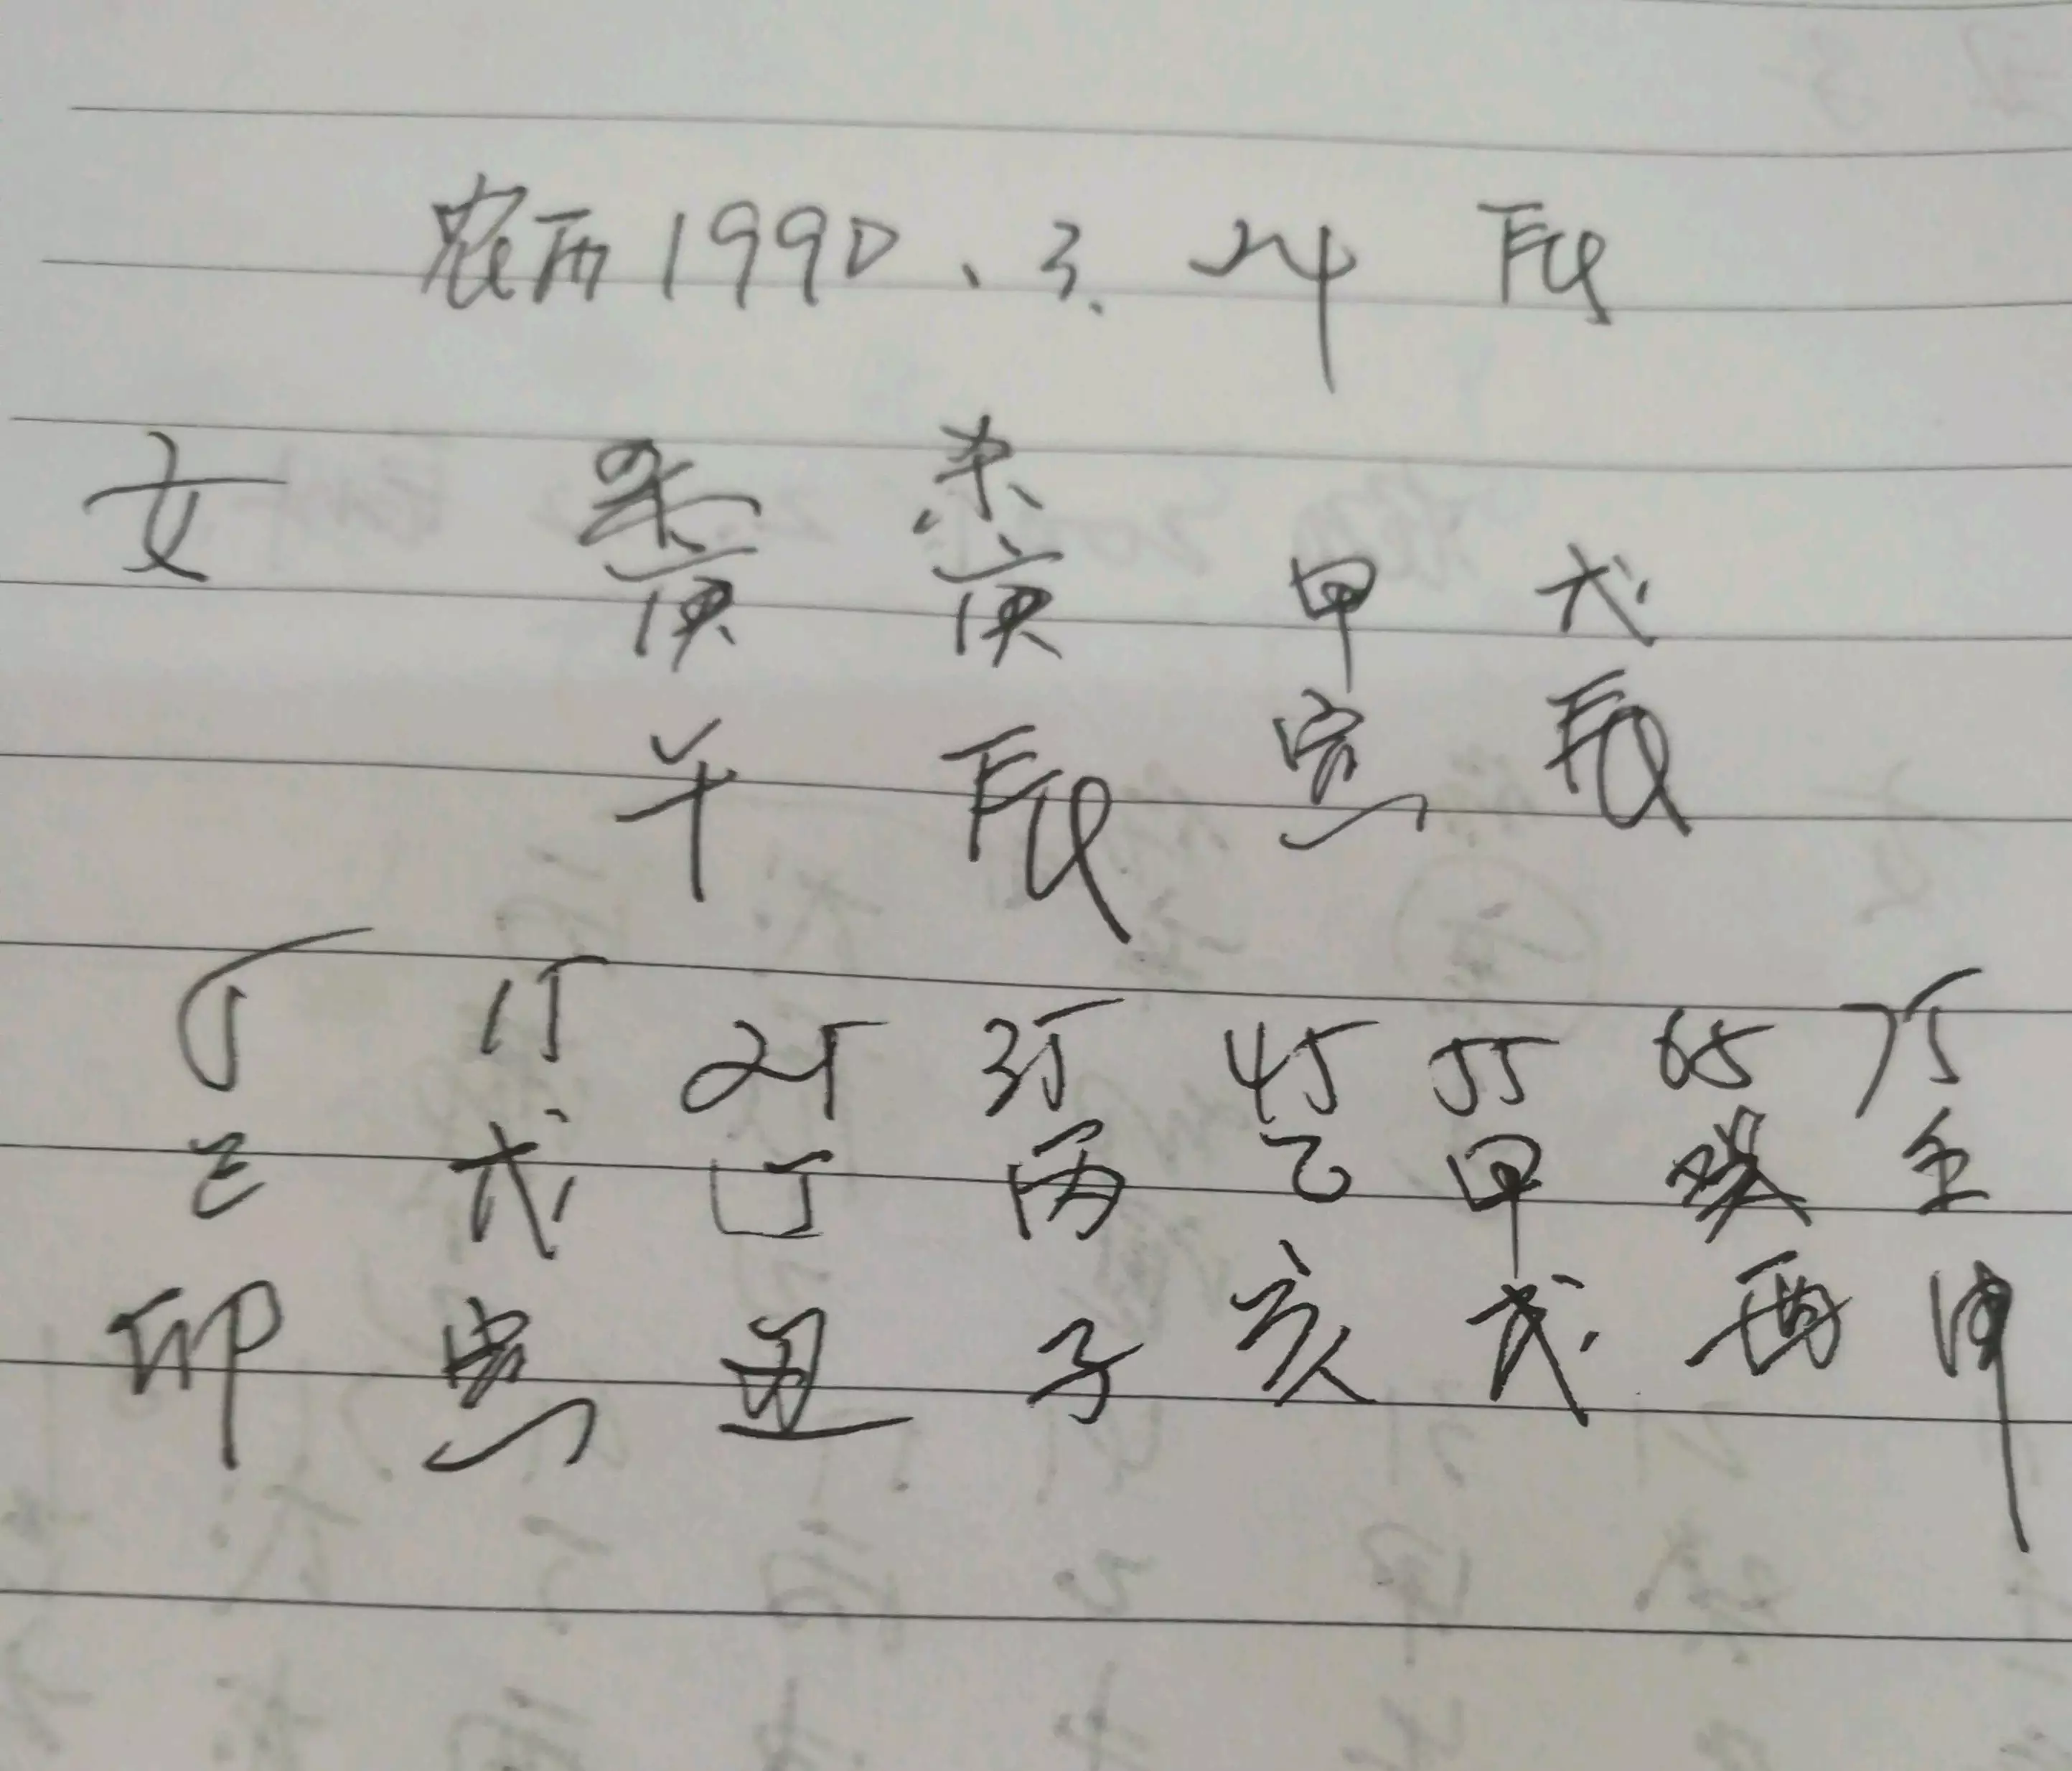 农历1990、3.24 辰
女 杀 杀
庚 庚 甲 戊
午 辰 寅 辰
5 15 25 35 45 55 65 75
己 戊 丁 丙 乙 甲 癸 壬
卯 寅 丑 子 亥 戌 酉 申